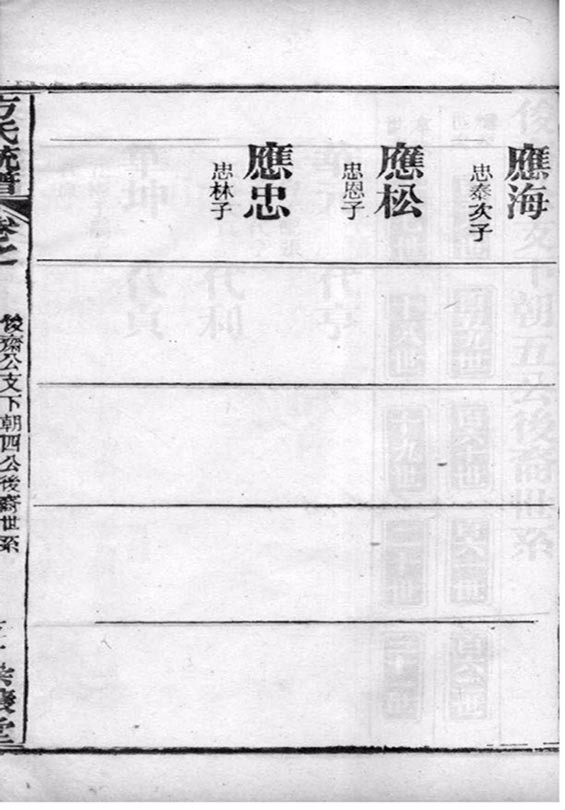 應海
忠泰次子
應松
忠恩子
應忠
忠林子
方氏統譜
俊齋公支下朝四公後裔世系